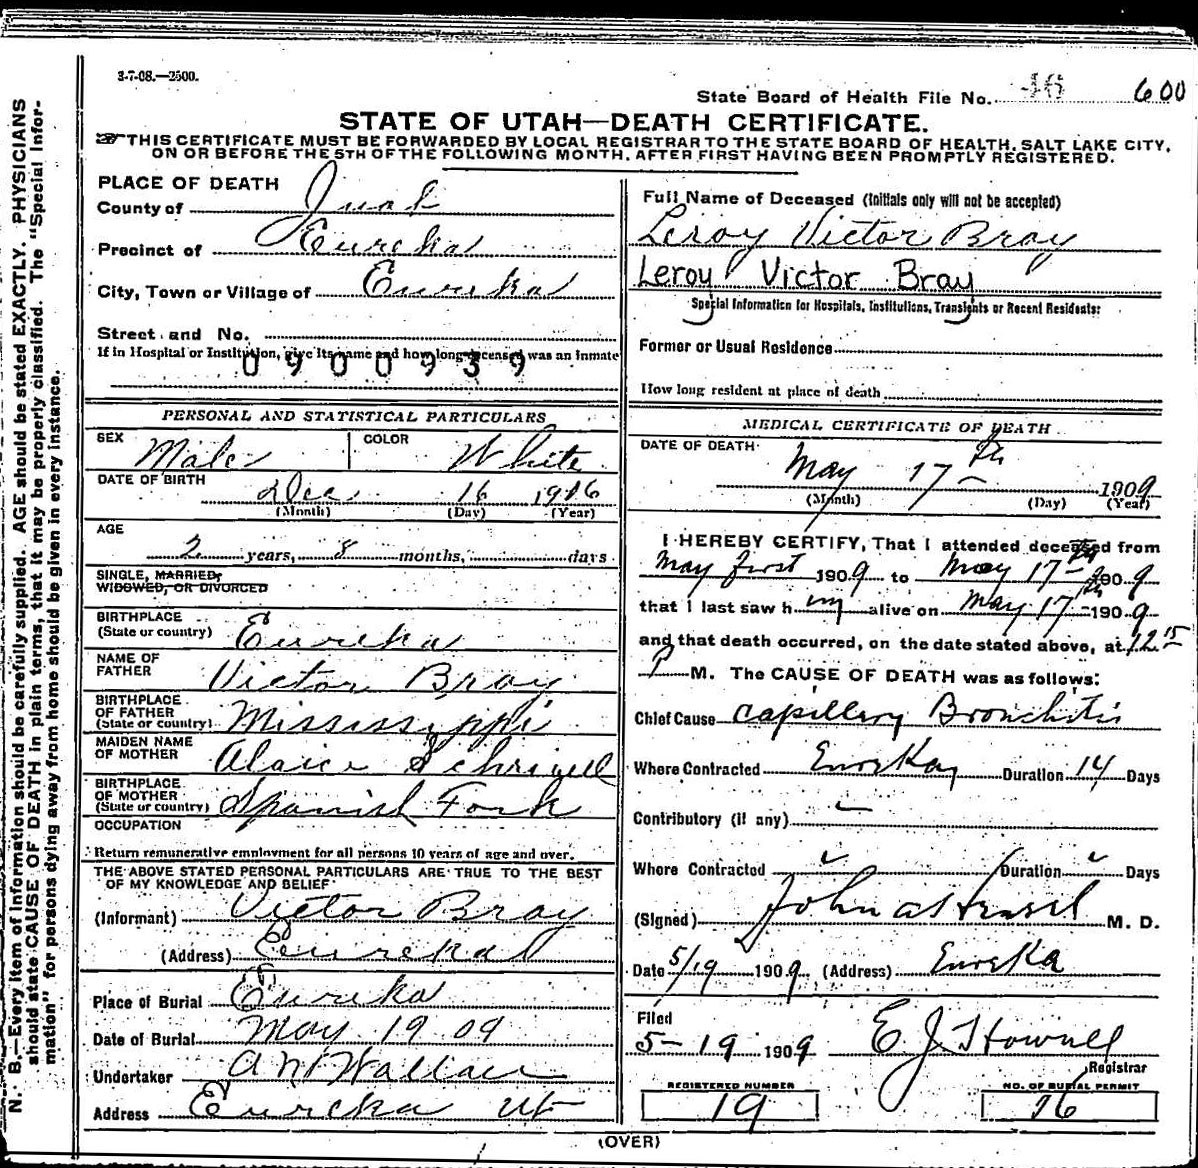 3-7-08.—2500.
State Board of Health File No. 16 600
STATE OF UTAH—DEATH CERTIFICATE.
THIS CERTIFICATE MUST BE FORWARDED BY LOCAL REGISTRAR TO THE STATE BOARD OF HEALTH, SALT LAKE CITY,
ON OR BEFORE THE 5TH OF THE FOLLOWING MONTH, AFTER FIRST HAVING BEEN PROMPTLY REGISTERED.
PLACE OF DEATH
County of Juab
Precinct of Eureka
City, Town or Village of Eureka
Street and No.
If in Hospital or Institution, give its name and how long deceased was an inmate
0900939
PERSONAL AND STATISTICAL PARTICULARS
SEX Male COLOR White
DATE OF BIRTH Dec 16 1906
(Month) (Day) (Year)
AGE
2 years, 8 months, days
SINGLE, MARRIED,
WIDOWED, OR DIVORCED
BIRTHPLACE
(State or country) Eureka
NAME OF
FATHER Victor Bray
BIRTHPLACE
OF FATHER
(State or country) Mississippi
MAIDEN NAME
OF MOTHER
BIRTHPLACE
OF MOTHER
(State or country) Spanish Fork
OCCUPATION
Return remunerative employment for all persons 10 years of age and over.
THE ABOVE STATED PERSONAL PARTICULARS ARE TRUE TO THE BEST
OF MY KNOWLEDGE AND BELIEF
(Informant) Victor Bray
(Address) Eureka
Place of Burial Eureka
Date of Burial May 19 09
Undertaker Wallace
Address Eureka Ut
Full Name of Deceased (Initials only will not be accepted)
Leroy Victor Bray
Leroy Victor Bray
Special Information for Hospitals, Institutions, Transients or Recent Residents:
Former or Usual Residence
How long resident at place of death
MEDICAL CERTIFICATE OF DEATH
DATE OF DEATH
May 17th 1909
(Month) (Day) (Year)
I HEREBY CERTIFY, That I attended deceased from
May first 1909 to May 17th 1909
that I last saw him alive on May 17th 1909
and that death occurred, on the date stated above, at 12.15
P M. The CAUSE OF DEATH was as follows:
Chief Cause Capillery Bronchitis
Where Contracted Eureka Duration 14 Days
Contributory (if any) —
Where Contracted Duration Days
(Signed) John M. D.
Date 5/19 1909 (Address) Eureka
Filed
5-19 1909 E J Howell
Registrar
REGISTERED NUMBER
19
NO. OF BURIAL PERMIT
16
(OVER)
N. B.—Every item of information should be carefully supplied. AGE should be stated EXACTLY. PHYSICIANS
should state CAUSE OF DEATH in plain terms, that it may be properly classified. The "Special Infor-
mation" for persons dying away from home should be given in every instance.